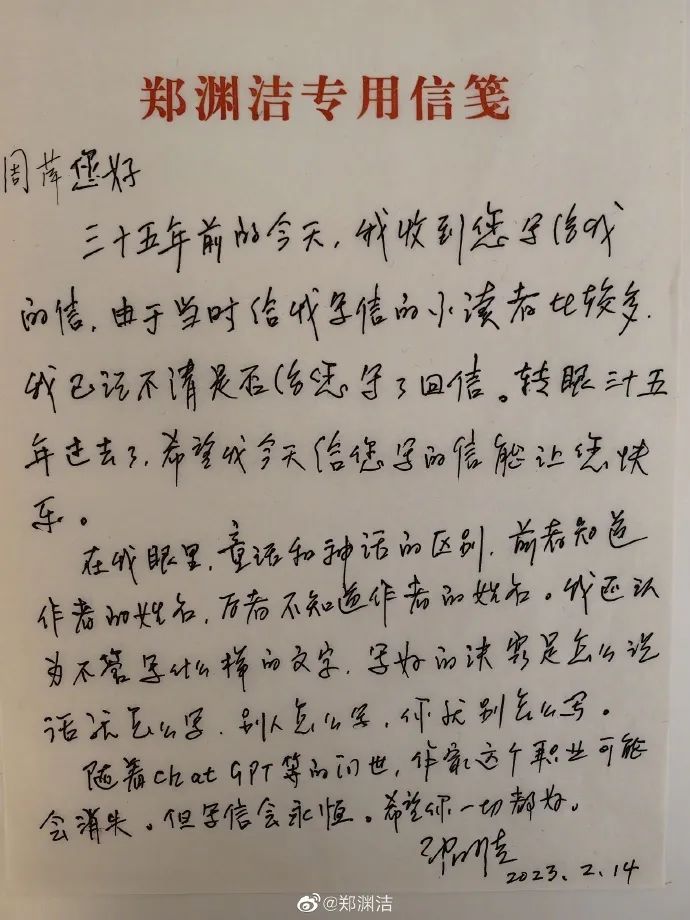 郑渊洁专用信笺
周萍您好
三十五年前的今天,我收到您写给我
的信,由于当时给我写信的小读者比较多,
我已记不清是否给您写了回信。转眼三十五
年过去了,希望我今天给您写的信能让您快
乐。
在我眼里,童话和神话的区别,前者知道
作者的姓名,后者不知道作者的姓名。我还认
为不管写什么样的文字,写好的诀窍是怎么说
话就怎么写,别人怎么写,你就别怎么写。
随着chat GPT等的问世,作家这个职业可能
会消失。但写信会永恒。希望你一切都好。
郑渊洁
2023.2.14
@郑渊洁